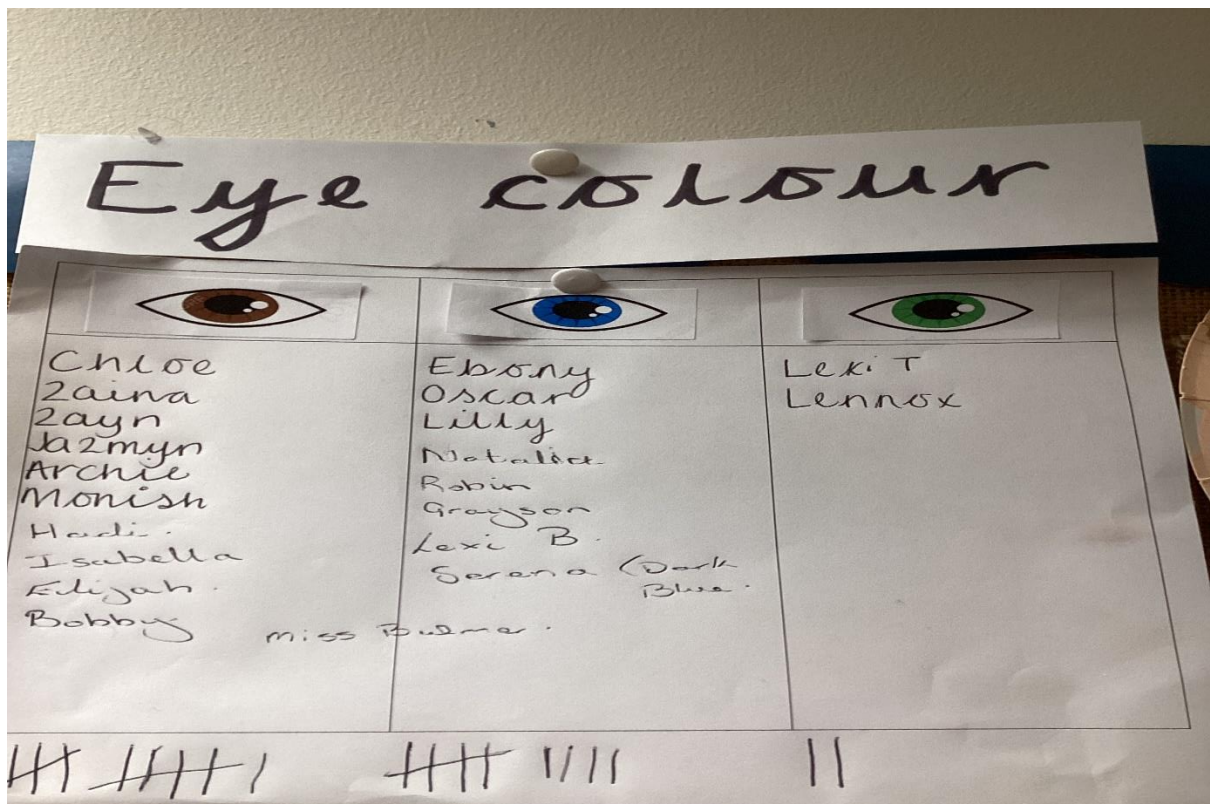 Eye colour
Chloe
Zaina
Zayn
Jazmyn
Archie
Monish
Hadi.
Isabella
Elijah.
Bobby
Miss Bulmer.
Ebony
Oscar
Lilly
Natalia
Robin
Grayson
Lexi B.
Serena (Dark
Blue.
Lexi T
Lennox